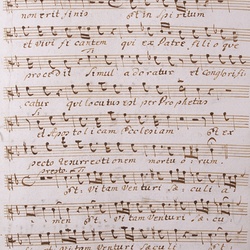 non erit finis et in spiritum
et vivificantem qui ex Patre filioque
procedit simul adoratur et conglorifi
catur qui locutus est per Prophetas
et Apostolicam Ecclesiam et ex
pecto resurrectionem mortuorum.
presto et vitam venturi sæculi a
men et vitam venturi sæcu
et vitam venturi sæculi